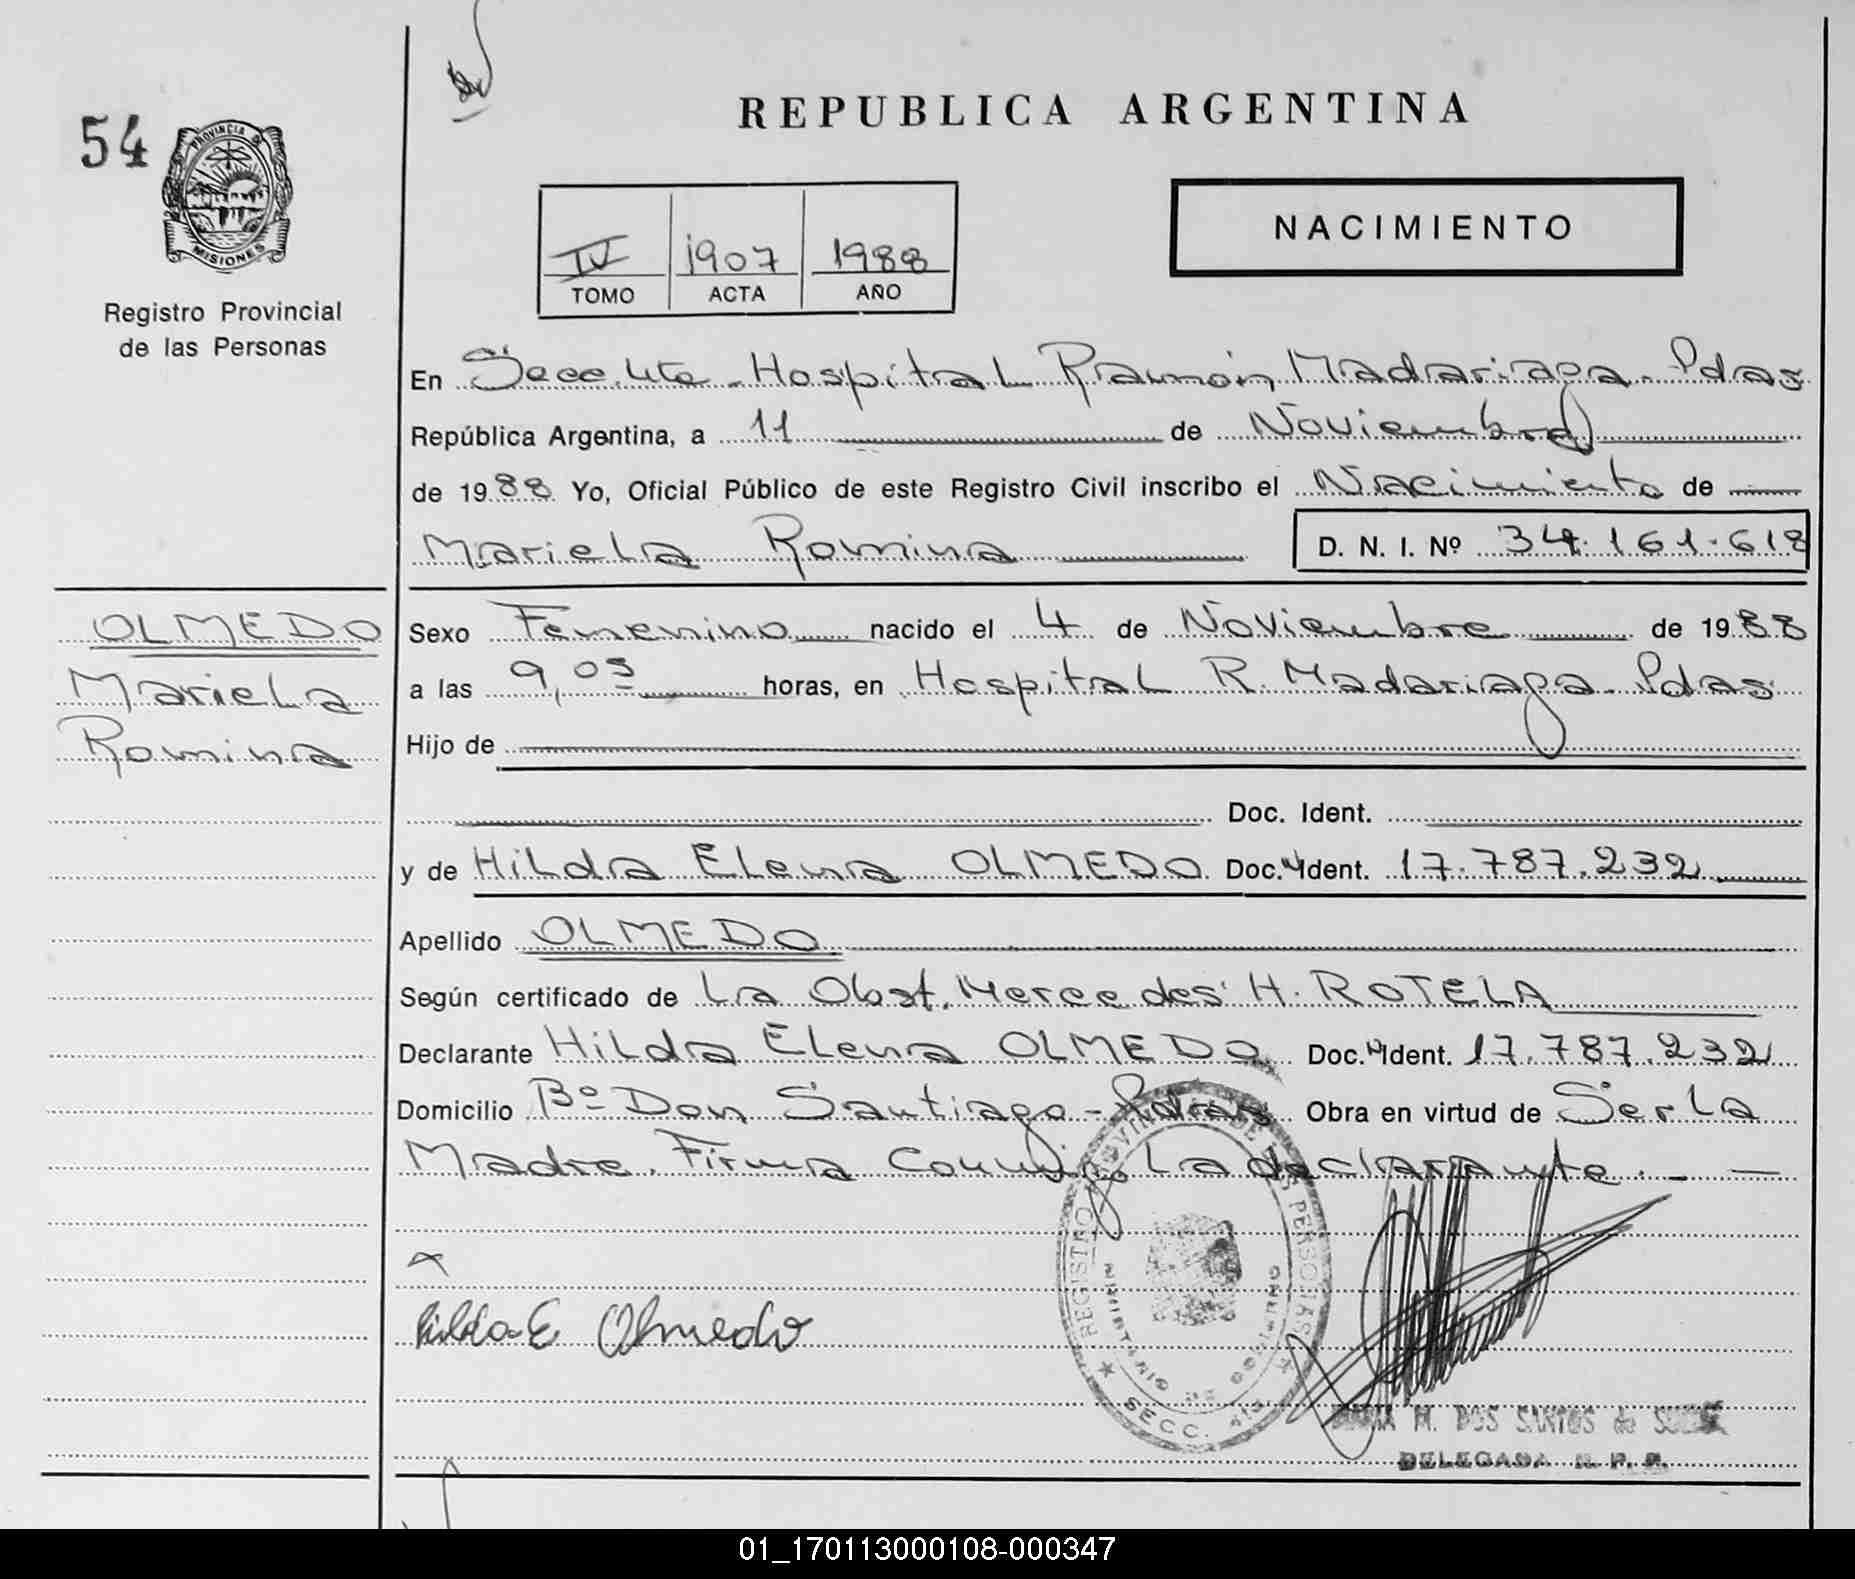 54
PROVINCIA DE
MISIONES
Registro Provincial
de las Personas
REPUBLICA ARGENTINA
NACIMIENTO
IV 1907 1988
TOMO ACTA AÑO
En Secc. Hospital Ramón Madariaga. Pdas
República Argentina, a 11 de Noviembre
de 1988 Yo, Oficial Público de este Registro Civil inscribo el Nacimiento de
Mariela Romina D. N. I. Nº 34.161.618
OLMEDO
Mariela
Romina
Sexo Femenino nacido el 4 de Noviembre de 1988
a las 9,05 horas, en Hospital R. Madariaga. Pdas
Hijo de
Doc. Ident.
y de Hilda Elena OLMEDO Doc. Ident. 17.787.232
Apellido OLMEDO
Según certificado de La Obst. Mercedes H. ROTELA
Declarante Hilda Elena OLMEDO Doc. Ident. 17.787.232
Domicilio Bº Don Santiago - Pdas Obra en virtud de Ser la
Madre. Firma Conmigo La declarante. -
Hilda E Olmedo
REGISTRO PROVINCIAL DE LAS PERSONAS
MINISTERIO DE GOBIERNO
SECC.
M. DOS SANTOS de
DELEGADA R. P. P.
01_170113000108-000347